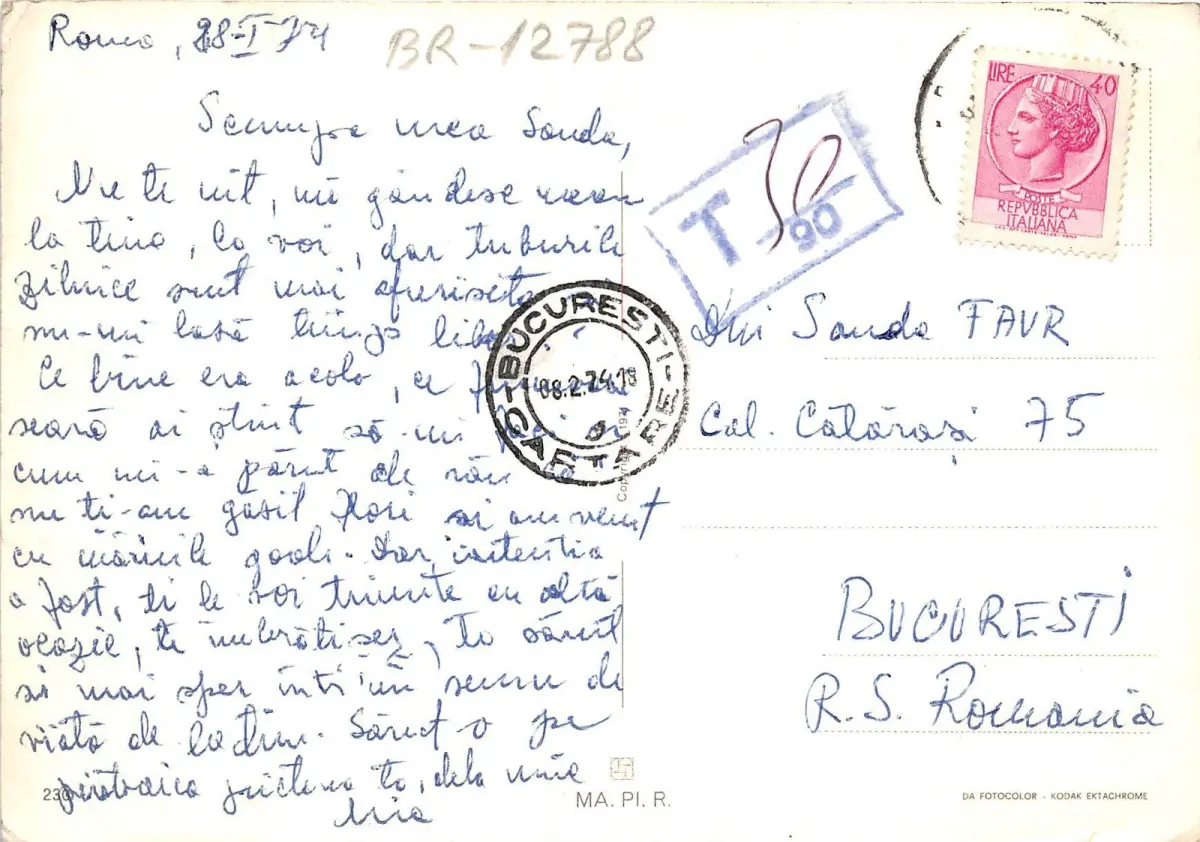 Roma, 28-I-74
BR-12788
Scumpa mea Sanda,
Nu te uit, mă gândesc mereu
la tine, la voi, dar treburile
zilnice sunt mai afurisite
nu-mi lasă timp liber
Ce bine era acolo, ce
seară ai știut să-mi
cum mi-a părut de rău că
nu ti-am găsit flori și am venit
cu mâinile goale. Dar intentia
a fost, ti le voi trimite cu altă
ocazie, te îmbrătisez, te sărut
si mai sper într'un semn de
viată de la tine. Sărut-o pe
prietena ta, dela mine
LIRE 40
POSTE
REPVBBLICA
ITALIANA
T 30
90
BUCURESTI
CARTARE
08.2.74.18
Sanda FAUR
Cal. Călărași 75
BUCURESTI
R. S. Romania
MA. PI. R.
DA FOTOCOLOR - KODAK EKTACHROME